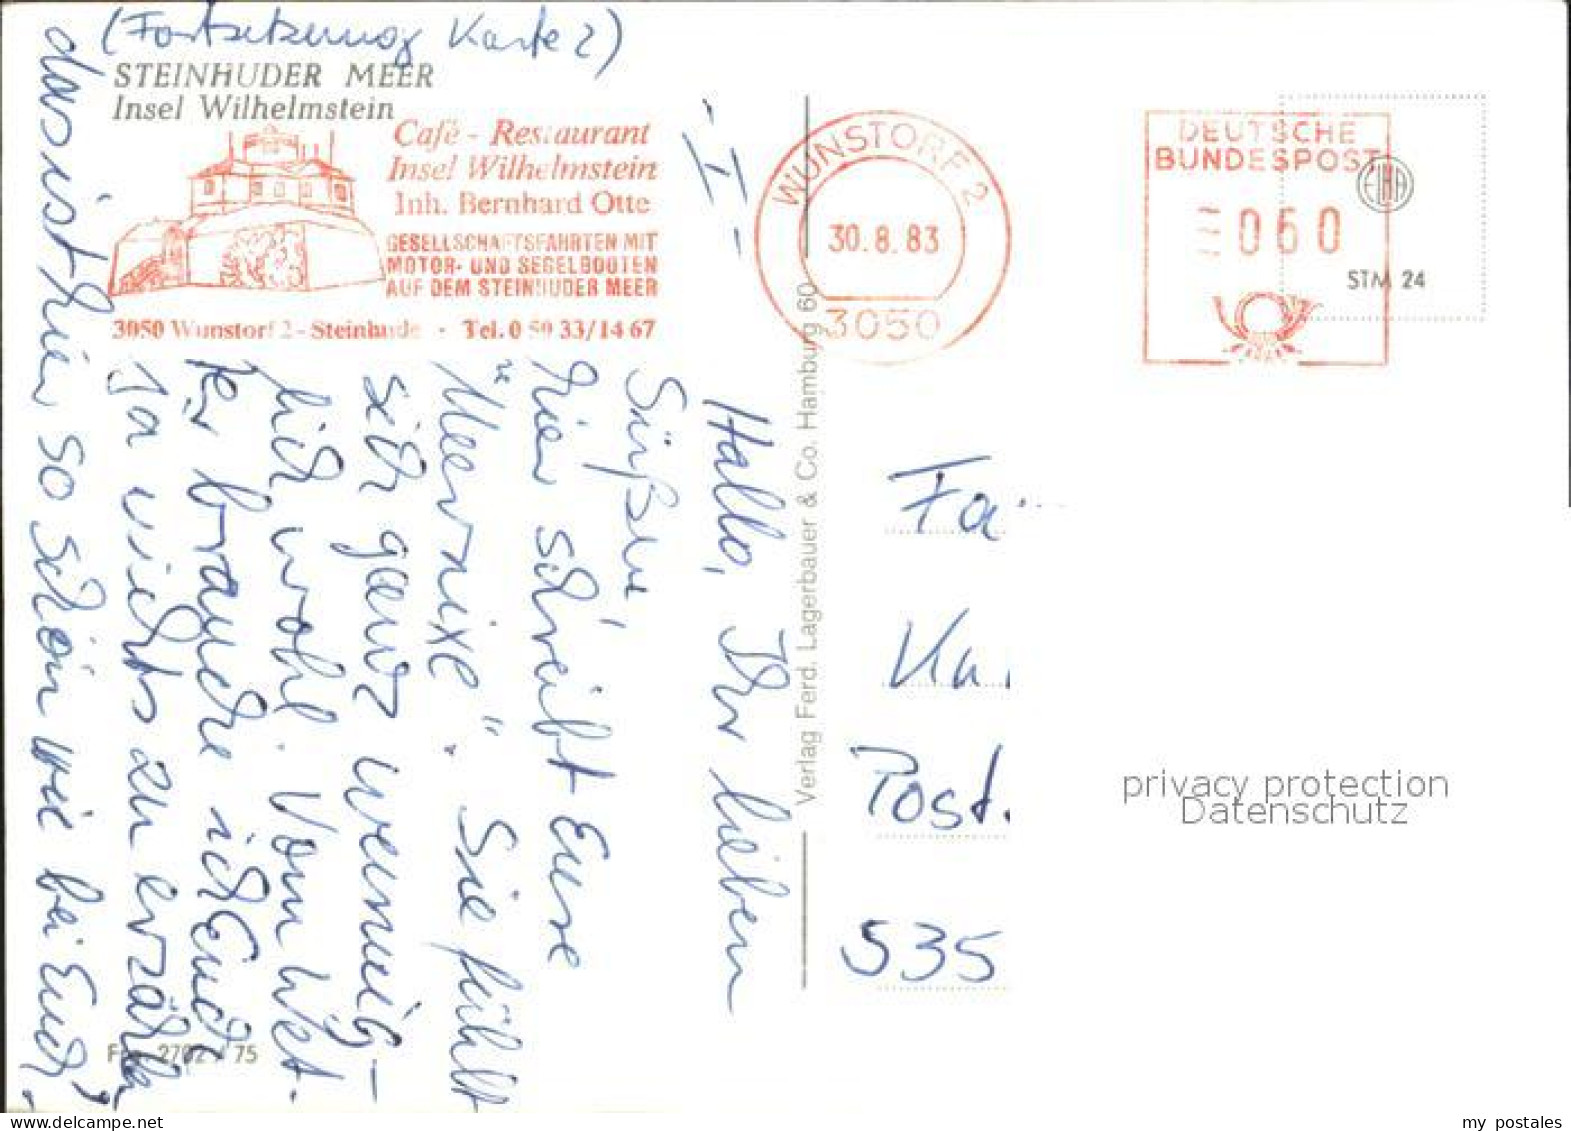 (Fortsetzung Karte 2)
STEINHUDER MEER
Insel Wilhelmstein
Café - Restaurant
Insel Wilhelmstein
Inh. Bernhard Otte
GESELLSCHAFTSFAHRTEN MIT
MOTOR- UND SEGELBOOTEN
AUF DEM STEINHUDER MEER
3050 Wunstorf 2 - Steinhude · Tel. 0 50 33/14 67
- I -
WUNSTORF 2
30.8.83
3050
DEUTSCHE
BUNDESPOST
060
STM 24
Hallo, Ihr lieben
Süßen,
hier schreibt Eure
"Meernixe". Sie fühlt
sich ganz wennig-
lich wohl. Vom Wet-
ter brauche ich Euch
ja nichts zu erzählen,
das ist hier so schön wie bei Euch.
Verlag Ferd. Lagerbauer & Co. Hamburg 60
Fa
Ka
Post.
535
privacy protection
Datenschutz
75
my postales